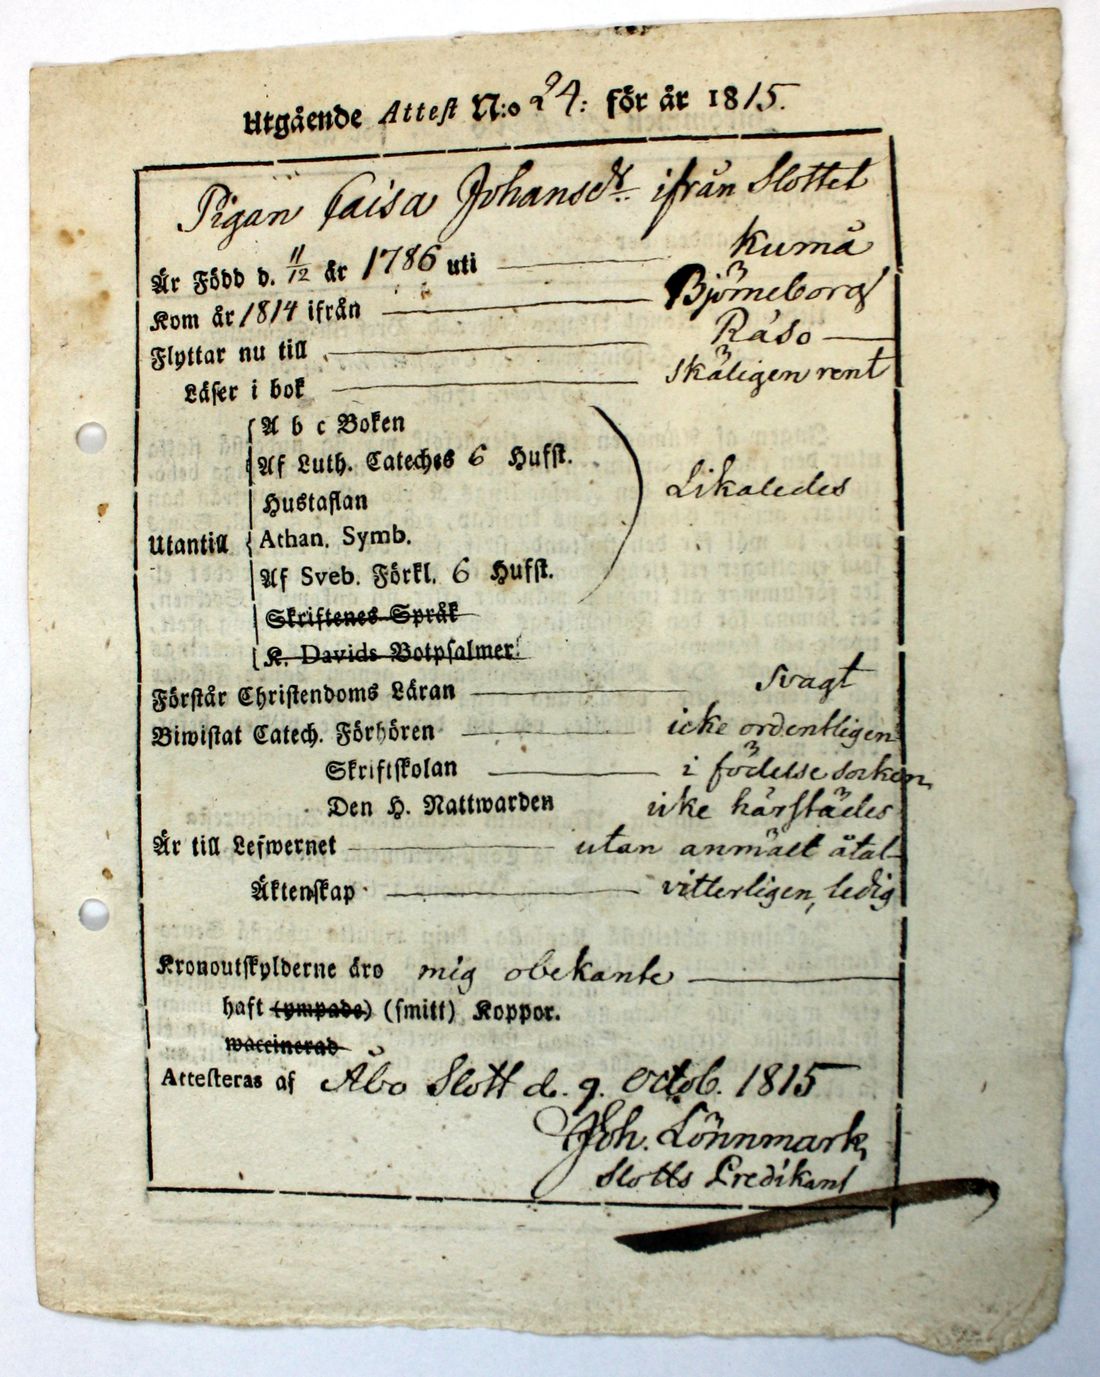 Utgående Attest N:o 24: för år 1815.
Pigan Caisa Johansdr. ifrån Slottet
Är Född d. 11/12 år 1786 uti Kumå
Kom år 1814 ifrån Björneborg
Flyttar nu till Räso
Läser i bok skäligen rent
A b c Boken
Af Luth. Cateches 6 Hufst.
Hustaflan Likaledes
Utantill Athan. Symb.
Af Sveb. Förkl. 6 Hufst.
Skriftenes Språk
K. Davids Botpsalmer.
Förstår Christendoms Läran svagt
Biwistat Catech. Förhören icke ordentligen
Skriftskolan i födelse socken
Den H. Nattwarden icke härstädes
Är till Lefwernet utan anmält åtal
Äktenskap vitterligen, ledig
Kronoutskylderne äro mig obekante
haft (ympade) (smitt) Koppor.
waccinerad
Attesteras af Åbo Slott d. 9. Octob. 1815
Joh. Lönnmark,
Slotts Predikant